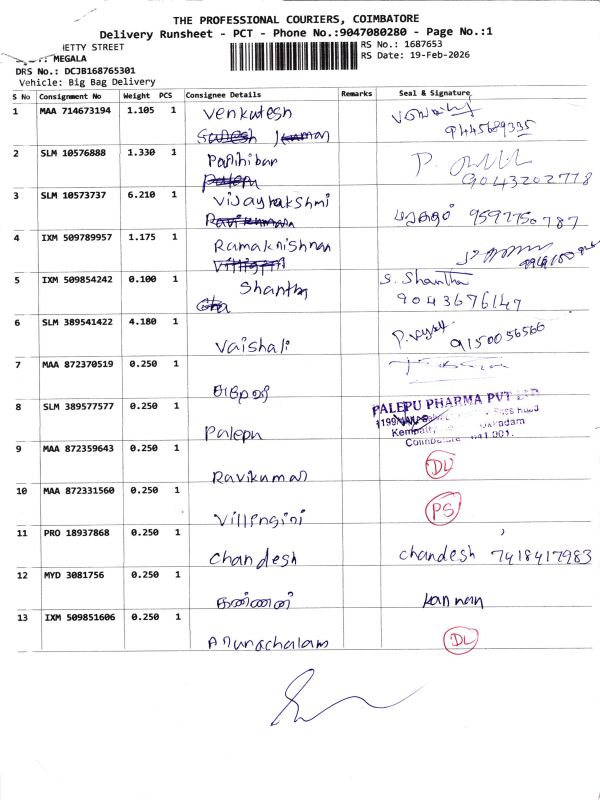 THE PROFESSIONAL COURIERS, COIMBATORE
Delivery Runsheet - PCT - Phone No.:9047080280 - Page No.:1
HETTY STREET
RS No.: 1687653
: MEGALA
RS Date: 19-Feb-2026
DRS No.: DCJB168765301
Vehicle: Big Bag Delivery
S No Consignment No Weight PCS Consignee Details Remarks Seal & Signature
1 MAA 714673194 1.105 1 Venkatesh
9445689335
2 SLM 10576888 1.330 1 Parihiban
Palepu
9043202778
3 SLM 10573737 6.210 1 Vijayalakshmi
Ravikumar 9597750787
4 IXM 509789957 1.175 1 Ramakrishnan
5 IXM 509854242 0.100 1 Shantha S. Shantha
9043676147
6 SLM 389541422 4.180 1 Vaishali 9150056566
7 MAA 872370519 0.250 1
8 SLM 389577577 0.250 1 Palepu
PALEPU PHARMA PVT LTD
9 MAA 872359643 0.250 1 Ravikumar DL
10 MAA 872331560 0.250 1 Villengini PS
11 PRO 18937868 0.250 1 Chandesh chandesh 7418417983
12 MYD 3081756 0.250 1 கண்ணன் kannan
13 IXM 509851606 0.250 1 Arunachalam DL